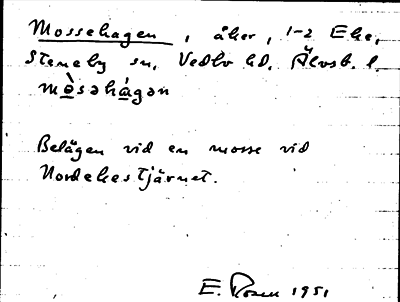 Mossehagen, åker, 1-2 Eke,
Steneby sn, Vedbo hd. Älvsb. l.
mòsəhágən
Belägen vid en mosse vid
Nordekestjärnet.
E. Rosen 1951